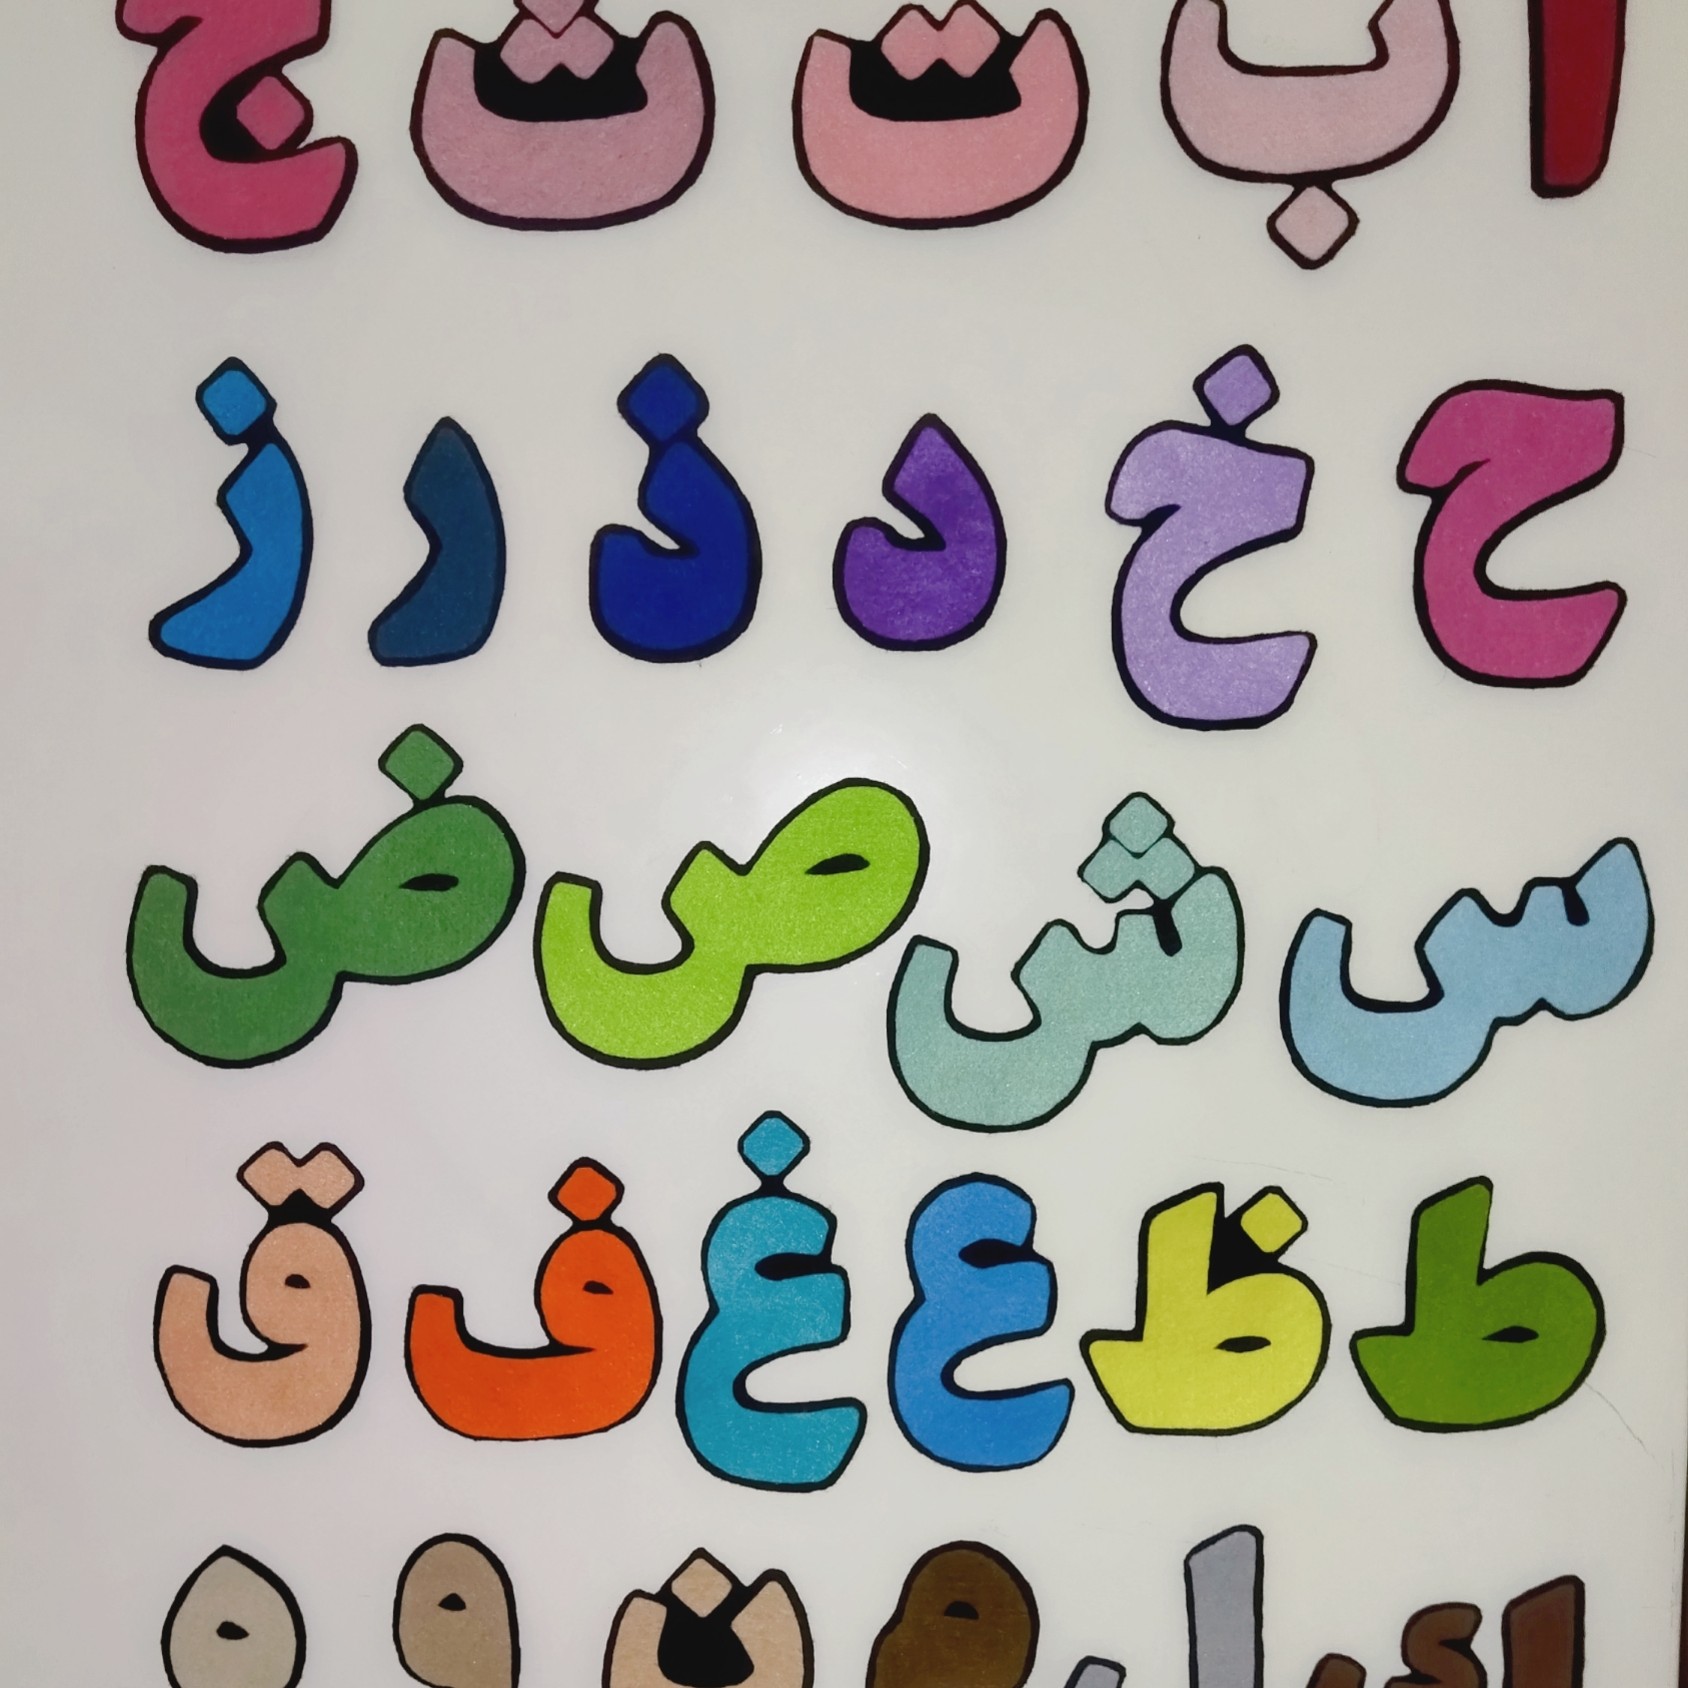 ا ب ت ث ج
ح خ د ذ ر ز
س ش ص ض
ط ظ ع غ ف ق
ك ل م ن و ه